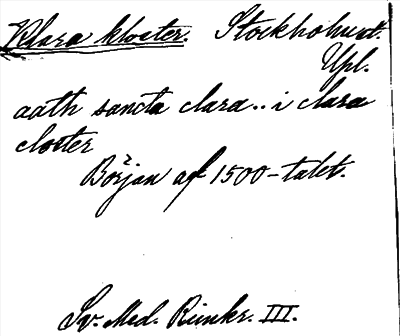 Klara kloster. Stockholm.
Upl.
aath sancta clara.. i clara
closter
Början af 1500-talet.
Sv. Med. Rimkr. III.